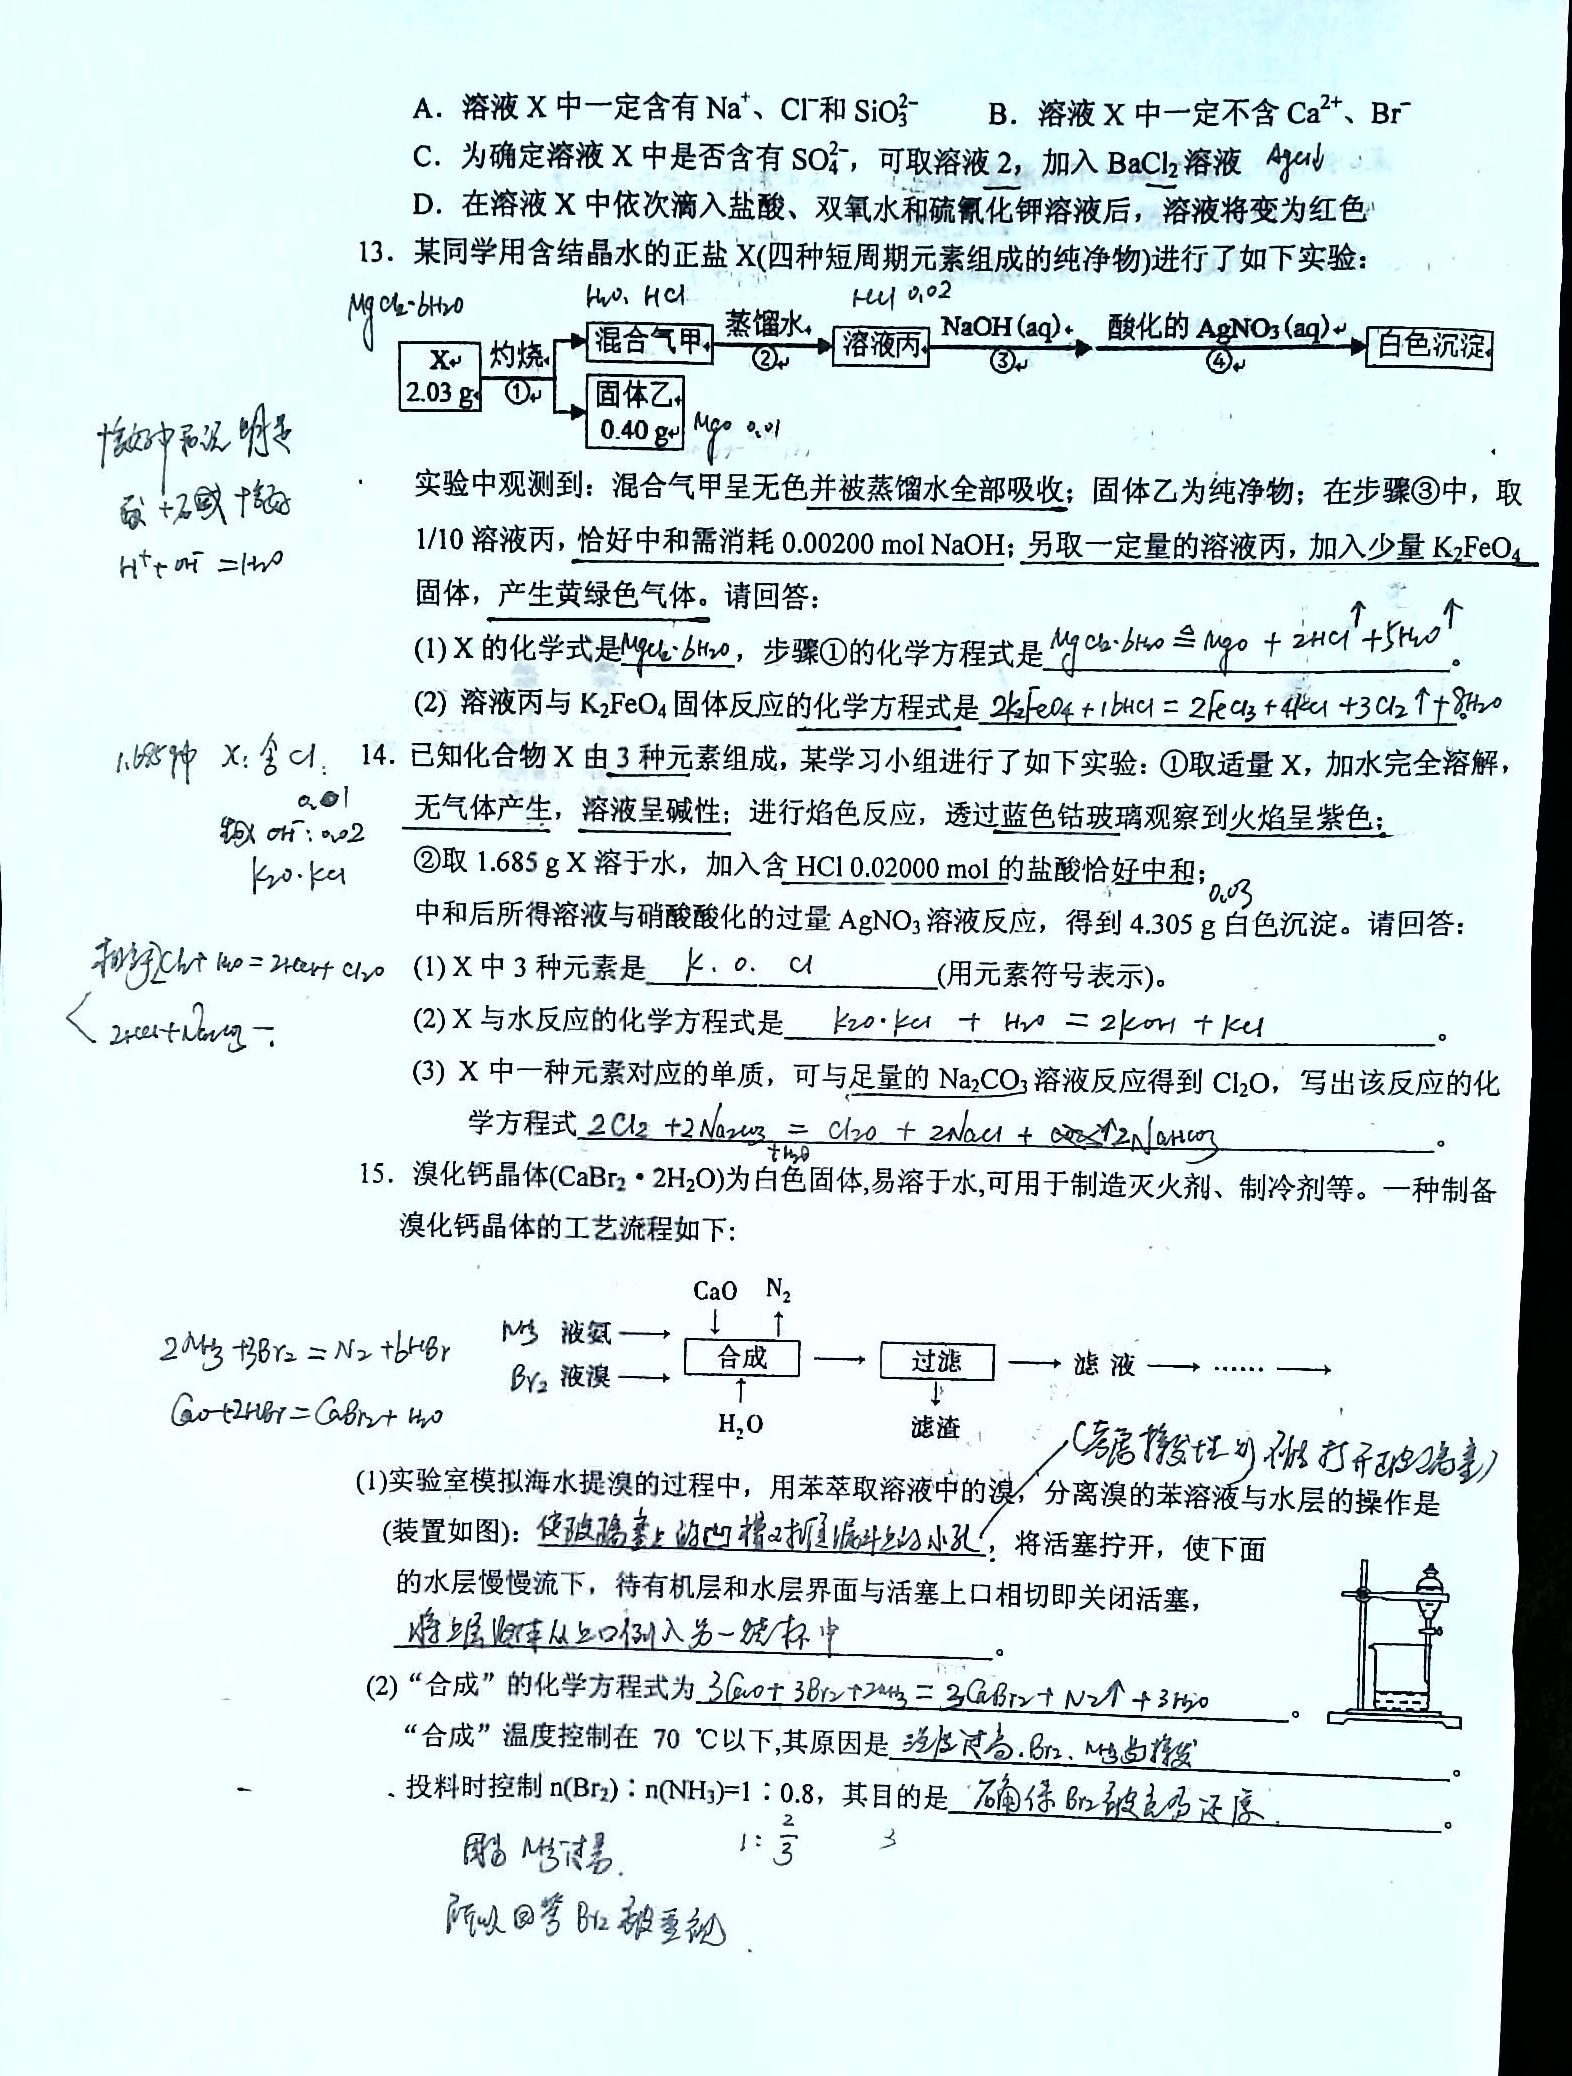 A．溶液 X 中一定含有 Na⁺、Cl⁻和 SiO₃²⁻ B．溶液 X 中一定不含 Ca²⁺、Br⁻
C．为确定溶液 X 中是否含有 SO₄²⁻，可取溶液 2，加入 BaCl₂ 溶液 AgCl↓
D．在溶液 X 中依次滴入盐酸、双氧水和硫氰化钾溶液后，溶液将变为红色
13．某同学用含结晶水的正盐 X(四种短周期元素组成的纯净物)进行了如下实验：
MgCl₂·6H₂O H₂O、HCl HCl 0.02
X 2.03 g 灼烧 ① 混合气甲 蒸馏水 ② 溶液丙 NaOH(aq) ③ 酸化的 AgNO₃(aq) ④ 白色沉淀
固体乙 0.40 g MgO 0.01
恰好中和说明是
酸+碱恰好
H⁺+OH⁻=H₂O
实验中观测到：混合气甲呈无色并被蒸馏水全部吸收；固体乙为纯净物；在步骤③中，取
1/10 溶液丙，恰好中和需消耗 0.00200 mol NaOH；另取一定量的溶液丙，加入少量 K₂FeO₄
固体，产生黄绿色气体。请回答：
(1) X 的化学式是MgCl₂·6H₂O，步骤①的化学方程式是 MgCl₂·6H₂O ≜ MgO + 2HCl↑+5H₂O↑。
(2) 溶液丙与 K₂FeO₄ 固体反应的化学方程式是 2K₂FeO₄+16HCl=2FeCl₃+4KCl+3Cl₂↑+8H₂O
14．已知化合物 X 由 3 种元素组成，某学习小组进行了如下实验：①取适量 X，加水完全溶解，
1.685g中 X：含 Cl：
0.01
OH⁻：0.02
K₂O·KCl
无气体产生，溶液呈碱性；进行焰色反应，透过蓝色钴玻璃观察到火焰呈紫色；
②取 1.685 g X 溶于水，加入含 HCl 0.02000 mol 的盐酸恰好中和；
0.03
中和后所得溶液与硝酸酸化的过量 AgNO₃ 溶液反应，得到 4.305 g 白色沉淀。请回答：
(1) X 中 3 种元素是 K、O、Cl (用元素符号表示)。
相当于 2Cl₂+H₂O=2HCl+Cl₂O
2HCl+Na₂CO₃—
(2) X 与水反应的化学方程式是 K₂O·KCl + H₂O = 2KOH + KCl 。
(3) X 中一种元素对应的单质，可与足量的 Na₂CO₃ 溶液反应得到 Cl₂O，写出该反应的化
学方程式 2Cl₂+2Na₂CO₃+H₂O = Cl₂O + 2NaCl + 2NaHCO₃ 。
15．溴化钙晶体(CaBr₂·2H₂O)为白色固体,易溶于水,可用于制造灭火剂、制冷剂等。一种制备
溴化钙晶体的工艺流程如下：
CaO N₂
NH₃ 液氨
合成 过滤 滤 液 ……
Br₂ 液溴
H₂O 滤渣
2NH₃+3Br₂=N₂+6HBr
CaO+2HBr=CaBr₂+H₂O
(1)实验室模拟海水提溴的过程中，用苯萃取溶液中的溴，分离溴的苯溶液与水层的操作是
(装置如图)：使玻璃塞上的凹槽对准漏斗上的小孔；将活塞拧开，使下面
的水层慢慢流下，待有机层和水层界面与活塞上口相切即关闭活塞，
将上层液体从上口倒入另一烧杯中 。
(2)“合成”的化学方程式为 3CaO+3Br₂+2NH₃=3CaBr₂+N₂↑+3H₂O 。
“合成”温度控制在 70 ℃以下,其原因是 温度过高.Br₂、NH₃均挥发 。
投料时控制 n(Br₂)∶n(NH₃)=1∶0.8，其目的是 确保 Br₂被充分还原 。
因为 NH₃过量. 1:2/3 3
所以回答 Br₂被重视.